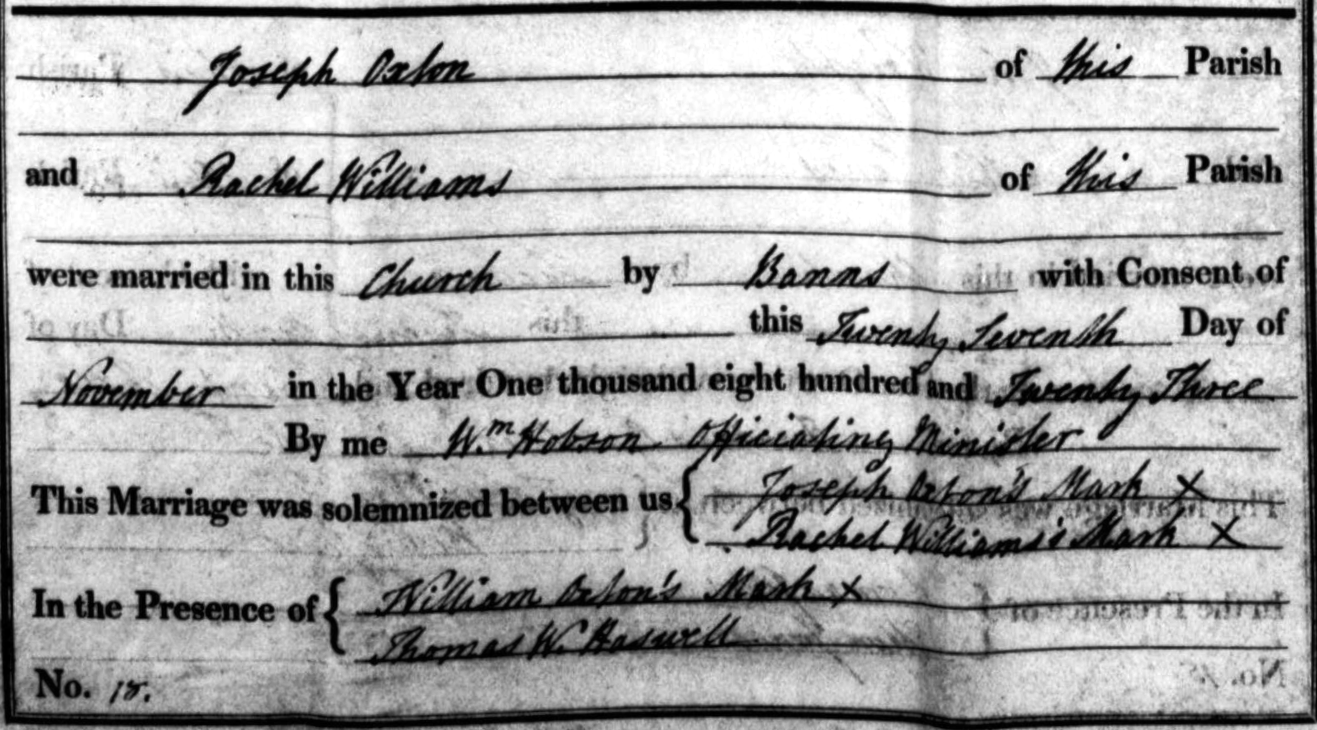 Joseph Oxton of this Parish
and Rachel Williams of this Parish
were married in this Church by Banns with Consent of
this Twenty Seventh Day of
November in the Year One thousand eight hundred and Twenty Three
By me Wm Hobson Officiating Minister
This Marriage was solemnized between us { Joseph Oxton's Mark X
Rachel Williams's Mark X
In the Presence of { William Oxton's Mark X
Thomas W. Haswell
No. 18.